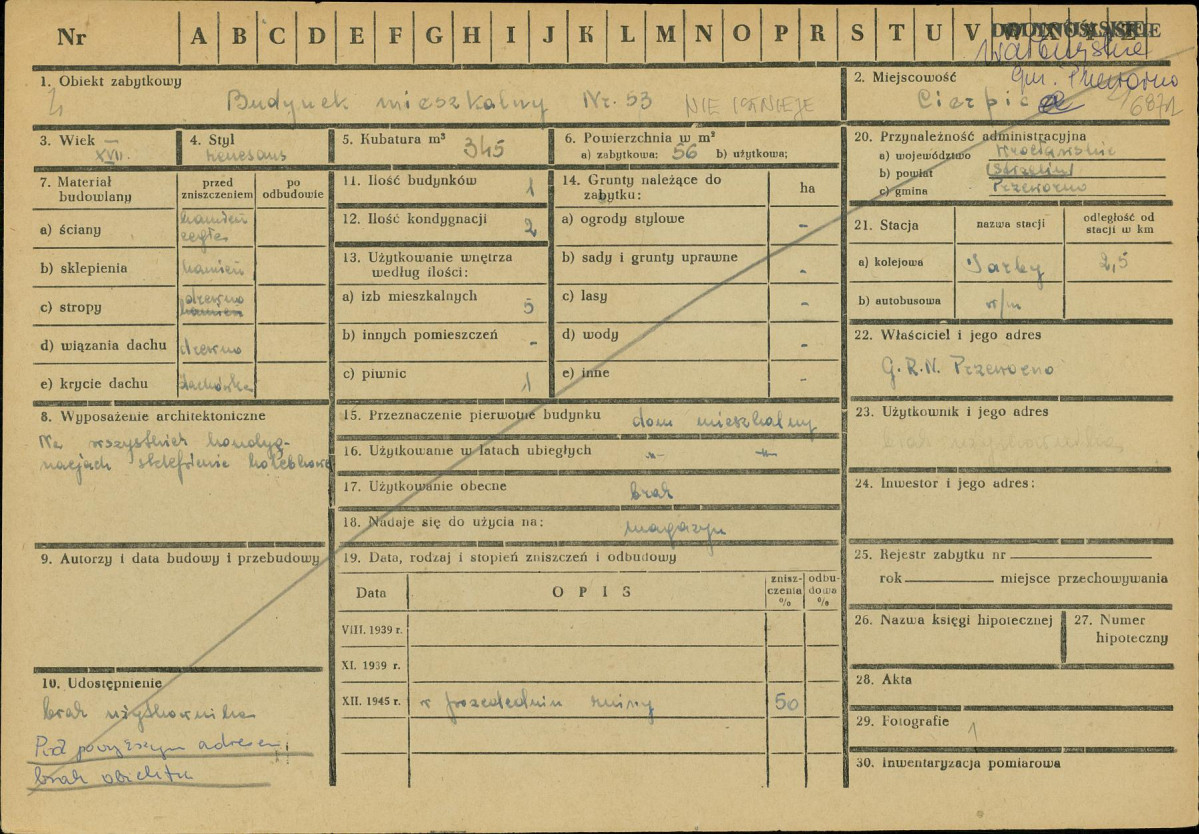 Nr A B C D E F G H I J K L M N O P R S T U V
DOLNOŚLĄSKIE
gm. Przeworno
6871
1. Obiekt zabytkowy
Budynek mieszkalny Nr. 53 NIE ISTNIEJE
2. Miejscowość
3. Wiek
XVII.
4. Styl
renesans
5. Kubatura m³ 345
6. Powierzchnia w m²
a) zabytkowa: 56 b) użytkowa;
7. Materiał budowlany
przed zniszczeniem
po odbudowie
a) ściany
kamień
cegła
b) sklepienia kamień
c) stropy drewno
kamień
d) wiązania dachu drewno
e) krycie dachu dachówka
8. Wyposażenie architektoniczne
Na wszystkich kondyg-
nacjach sklepienie kolebkowe
9. Autorzy i data budowy i przebudowy
10. Udostępnienie
brak użytkownika
Pod powyższym adresem
brak obiektu
11. Ilość budynków 1
12. Ilość kondygnacji 2
13. Użytkowanie wnętrza
według ilości:
a) izb mieszkalnych 5
b) innych pomieszczeń -
c) piwnic 1
14. Grunty należące do
zabytku:
ha
a) ogrody stylowe -
b) sady i grunty uprawne -
c) lasy -
d) wody -
e) inne -
15. Przeznaczenie pierwotne budynku dom mieszkalny
16. Użytkowanie w latach ubiegłych -"- -"-
17. Użytkowanie obecne brak
18. Nadaje się do użycia na: magazyn
19. Data, rodzaj i stopień zniszczeń i odbudowy
Data OPIS znisz-
czenia
% odbu-
dowa
%
VIII. 1939 r.
XI. 1939 r.
XII. 1945 r. w przededniu ruiny 50
20. Przynależność administracyjna
a) województwo Wrocławskie
b) powiat Strzelin
c) gmina Przeworno
21. Stacja
nazwa stacji
odległość od
stacji w km
a) kolejowa Jarby 2,5
b) autobusowa w/m
22. Właściciel i jego adres
G.R.N. Przeworno
23. Użytkownik i jego adres
brak użytkownika
24. Inwestor i jego adres:
25. Rejestr zabytku nr
rok miejsce przechowywania
26. Nazwa księgi hipotecznej
27. Numer
hipoteczny
28. Akta
29. Fotografie 1
30. Inwentaryzacja pomiarowa